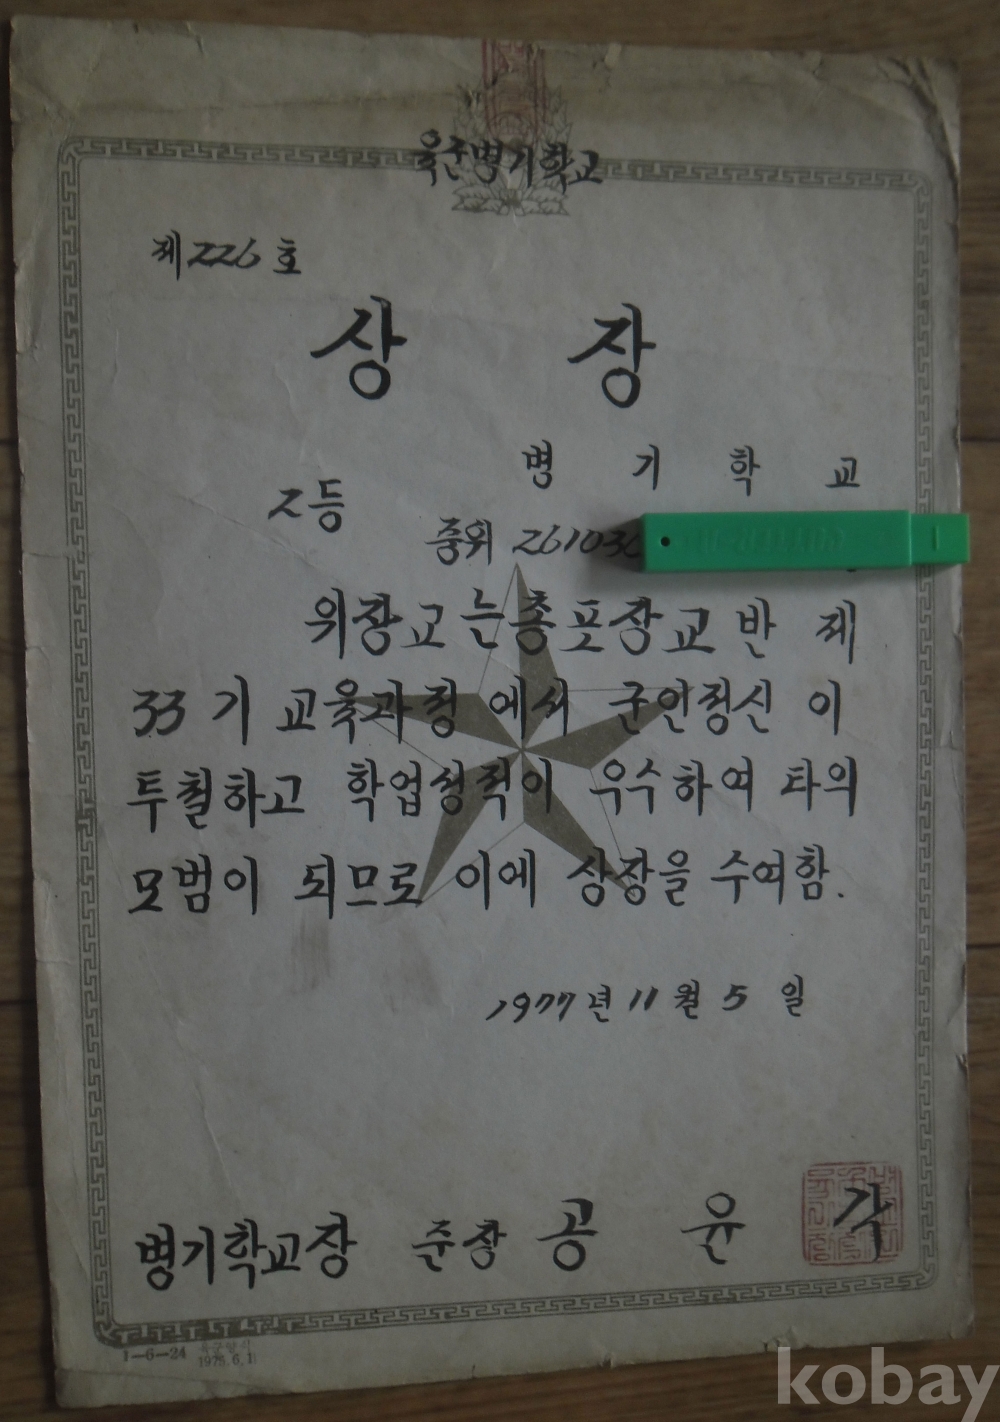 육군병기학교
제226호
상 장
병 기 학 교
2등
중위 261036
위장교는 총포장교반 제
33기 교육과정에서 군인정신이
투철하고 학업성적이 우수하여 타의
모범이 되므로 이에 상장을 수여함.
1977년 11월 5일
병기학교장 준장 공 윤 각
1-6-24 육군양식
1975.6.1
kobay